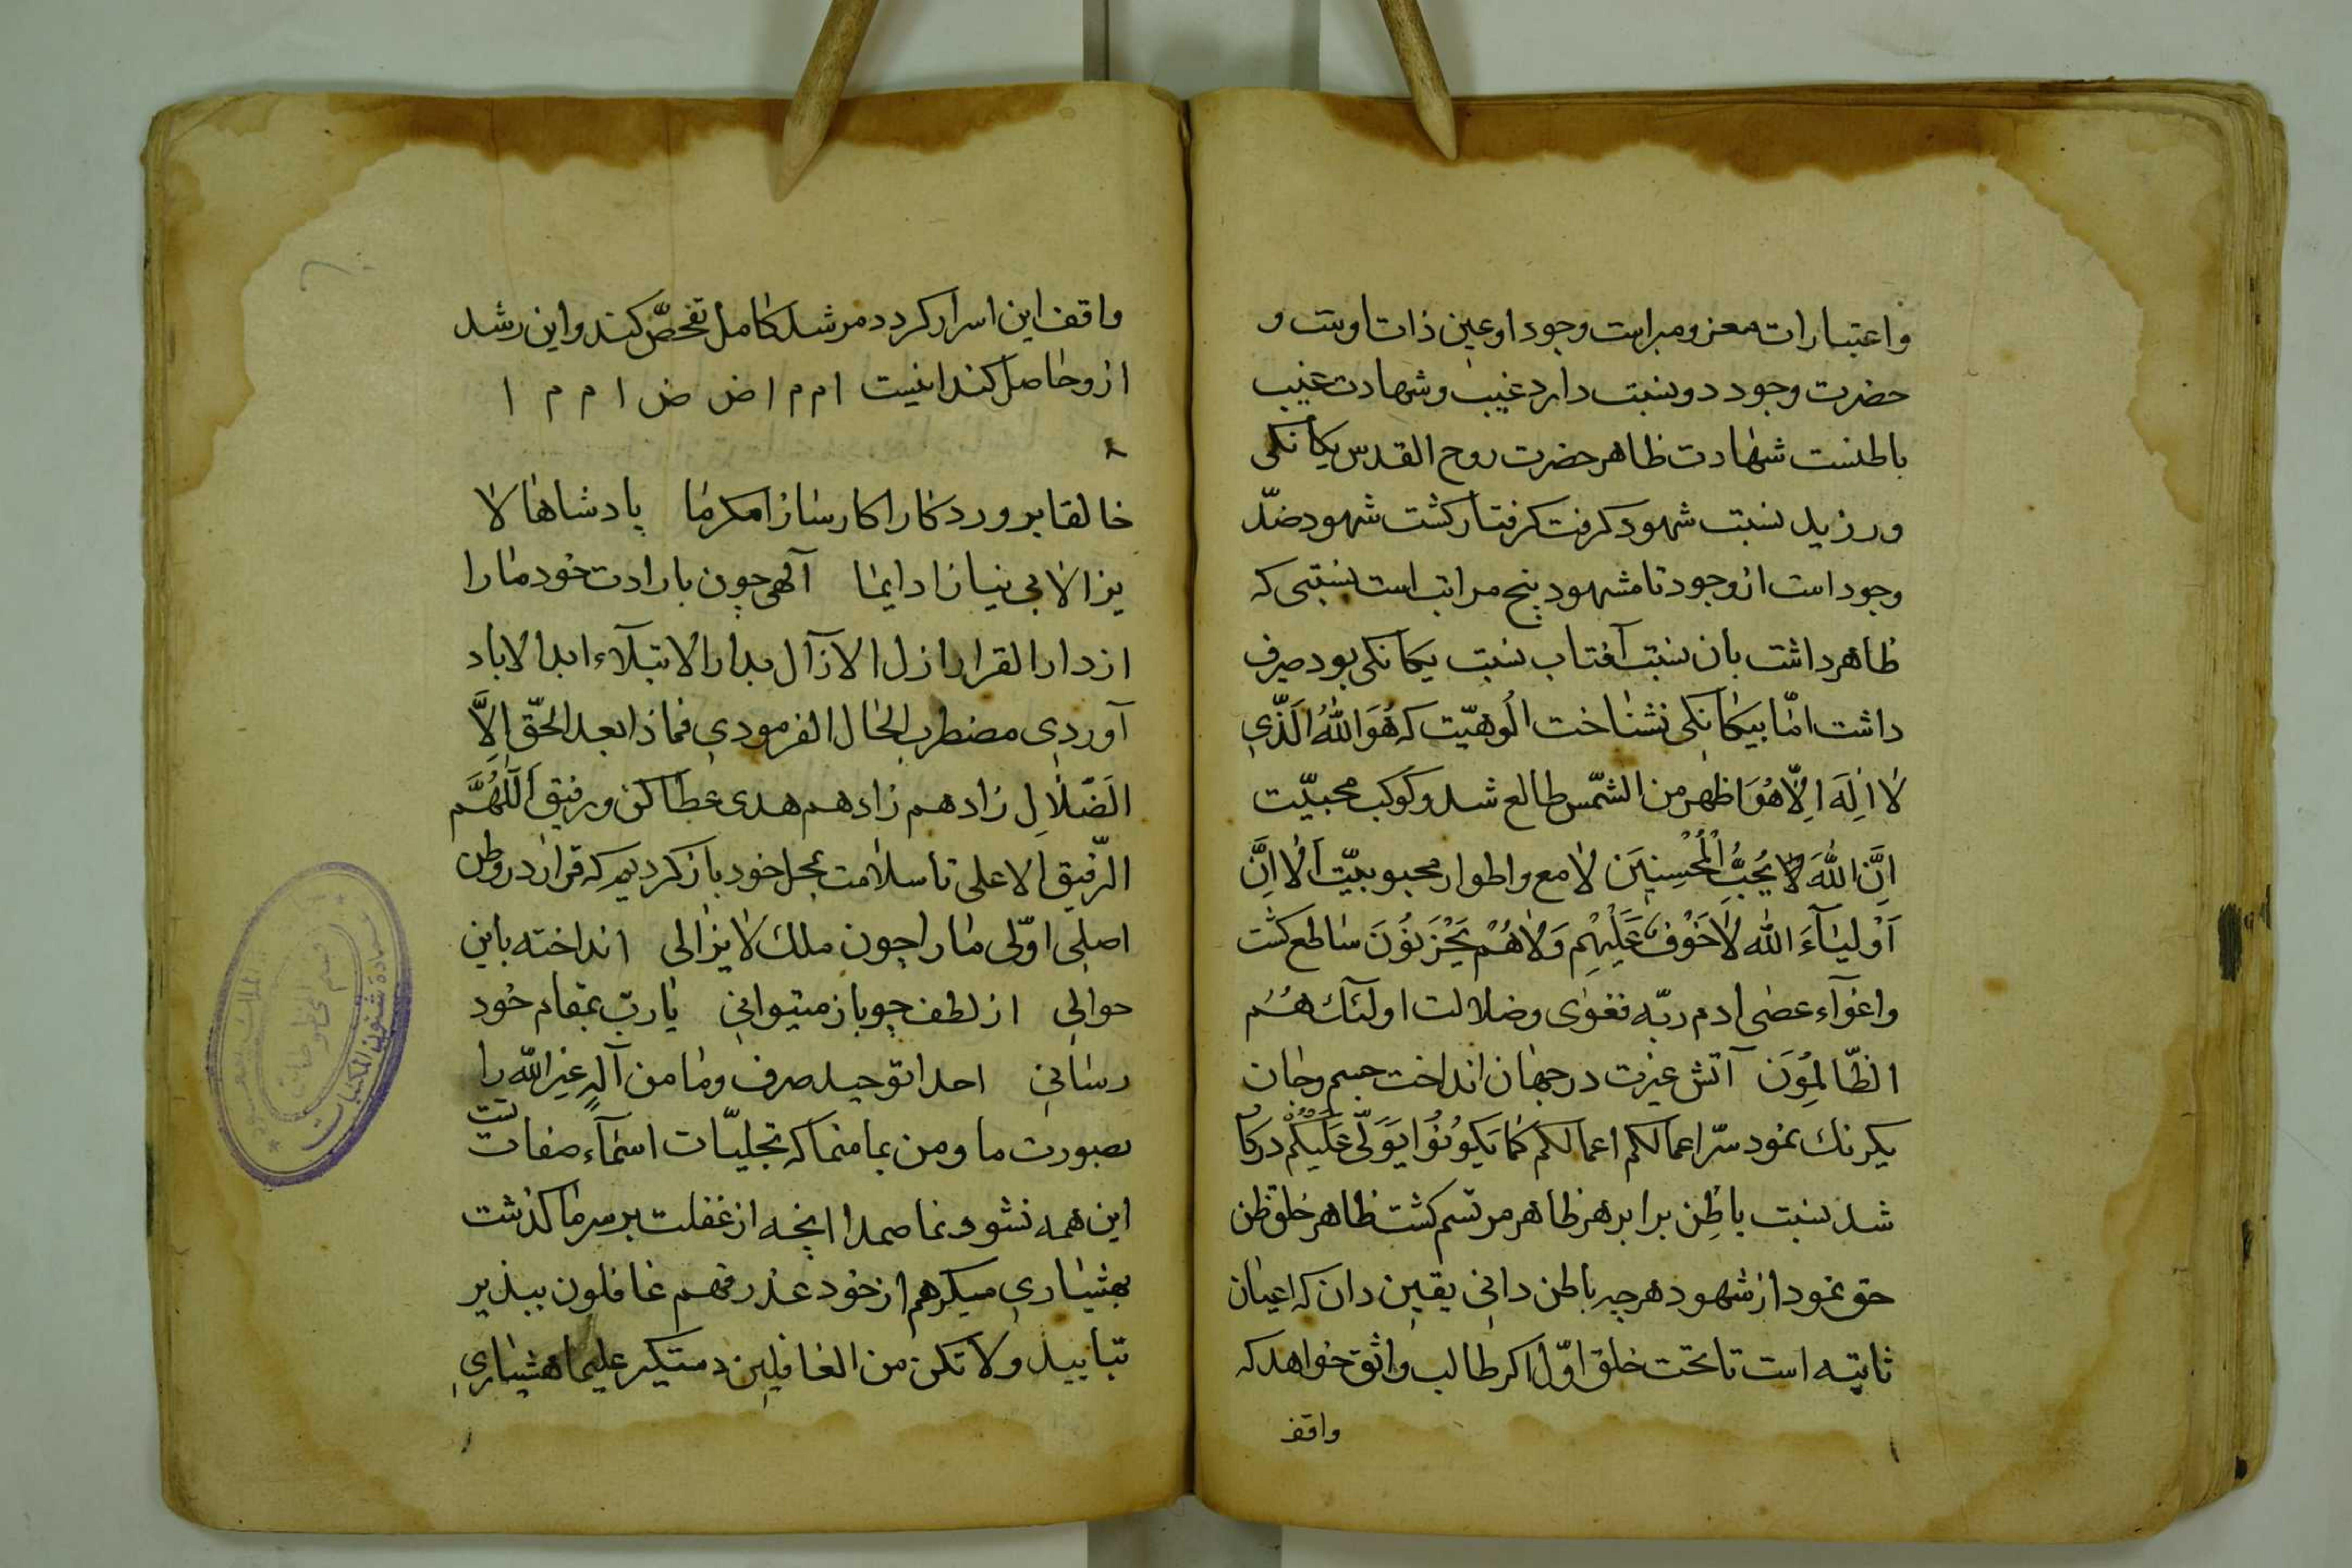 واعتبارات معز ومبراست وجود او عین ذات اوست و
حضرت وجود دو نسبت دارد غیب وشهادت غیب
باطنست شهادت ظاهر حضرت روح القدس یکانکی
ورزید نسبت شهود کرفت کرفتار کشت شهود ضدّ
وجود است از وجود تا مشهود پنج مراتب است نسبتی که
ظاهر داشت بان نسبت آفتاب نسبت یکانکی بود صرف
داشت امّا بیکانکی نشناخت الُوهیّت که هُوَ اللهُ الَّذّی
لا اِلهَ اِلّا هُوَ اظهر من الشمّس طالع شد وکوکب محبیّت
اِنَّ اللهَ لا یُحِبُّ الْمُحْسِنِینَ لامع واطوار محبوبیّت اَلا اِنَّ
اَوْلِیَآءَ الله لا خَوْفٌ عَلَیْهِم وَلا هُمْ یَحْزَنُوْنَ ساطع کشت
واغوآء عصی ادم ربّه فغوی وضلالت اولئک هُمُ
الظّالِمُونَ آتش غیرت در جهان انداخت جسم وجان
یکرنک نمود سرّ اعمالکم اعمالکم کما تکونُوْا یُوَلّی عَلَیْکُمْ درکا
شد نسبت باطِن برابر هر ظاهر مرتسم کشت ظاهر خلق ظن
حق نمود از شهود هر چه باطن دانی یقین دان که اعیان
ثابته است تا تحت خلق اوّل اکر طالب واثق خواهد که
واقف
واقف این اسرار کردد مرشد کامل تفحصّ کند واین رشد
ازو حاصل کند اینست ا م م ا ض ض ا م م ا
خالقا پروردکارا کارسازا مکرما پادشاها لا
یزالا بی نیازا دایما آلهی چون بارادت خود مارا
از دار القرار ازل الآزآل بدار الابتلآء ابد الاباد
آوردی مضطرب الحال الفرمودی فماذا بعد الحقّ اِلاَّ
الضّلالِ زادهم زادهم هدی عطا کن ورفیق اَللّهُمَّ
الرّفیق الاعلی تا سلامت بمحل خود باز کردیم که قرار در وطن
اصلی اوّلی مارا چون ملک لا یزالی انداخته باین
حوالی از لطف چو باز میتوانی یا ربّ بمقام خود
رسانی احدا توحید صرف وما من آلهٍ غیر الله را
بصورت ما ومن بما منما که تجلیّات اسمآء صفات تست
این همه نشود نما صمدا انچه از غفلت بر سر ما کذشت
بهشیاری میکر هم از خود عذر وهم غافلون بپذیر
بتایید ولا تکن من الغافلین دستکیر علیما هشیاری